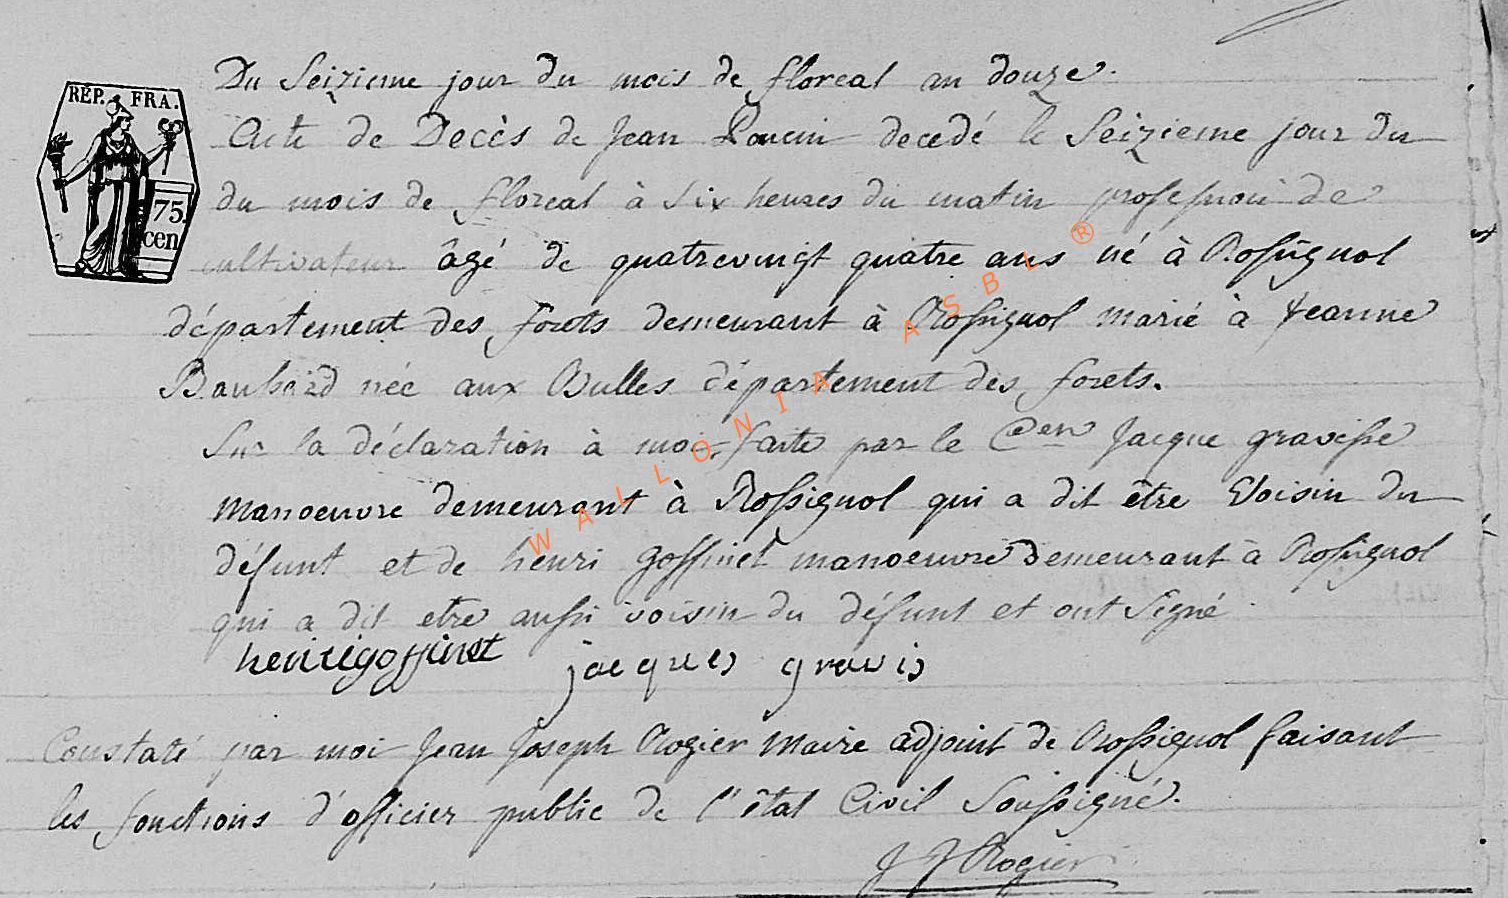 Du Seizieme jour du mois de floreal an douze.
RÉP. FRA.
Acte de Decès de Jean Poncin decedé le Seizieme jour du
du mois de floreal à six heures du matin profession de
75.
cen
cultivateur âgé de quatrevingt quatre ans né à Rossignol
département des forets demeurant à Rossignol marié à Jeanne
Baubard née aux Bulles département des forets.
Sur la déclaration à moi faite par le Cen Jacque gravisse
manoeuvre demeurant à Rossignol qui a dit être Voisin du
défunt et de henri goffinet manoeuvre demeurant à Rossignol
qui a dit etre aussi voisin du défunt et ont Signé
henrigoffinet jacques gravis
Constaté par moi Jean Joseph Rogier maire adjoint de Rossignol faisant
les fonctions d'officier public de l'êtat Civil Soussigné.
J J Rogier
WALLONIA ASBL ®